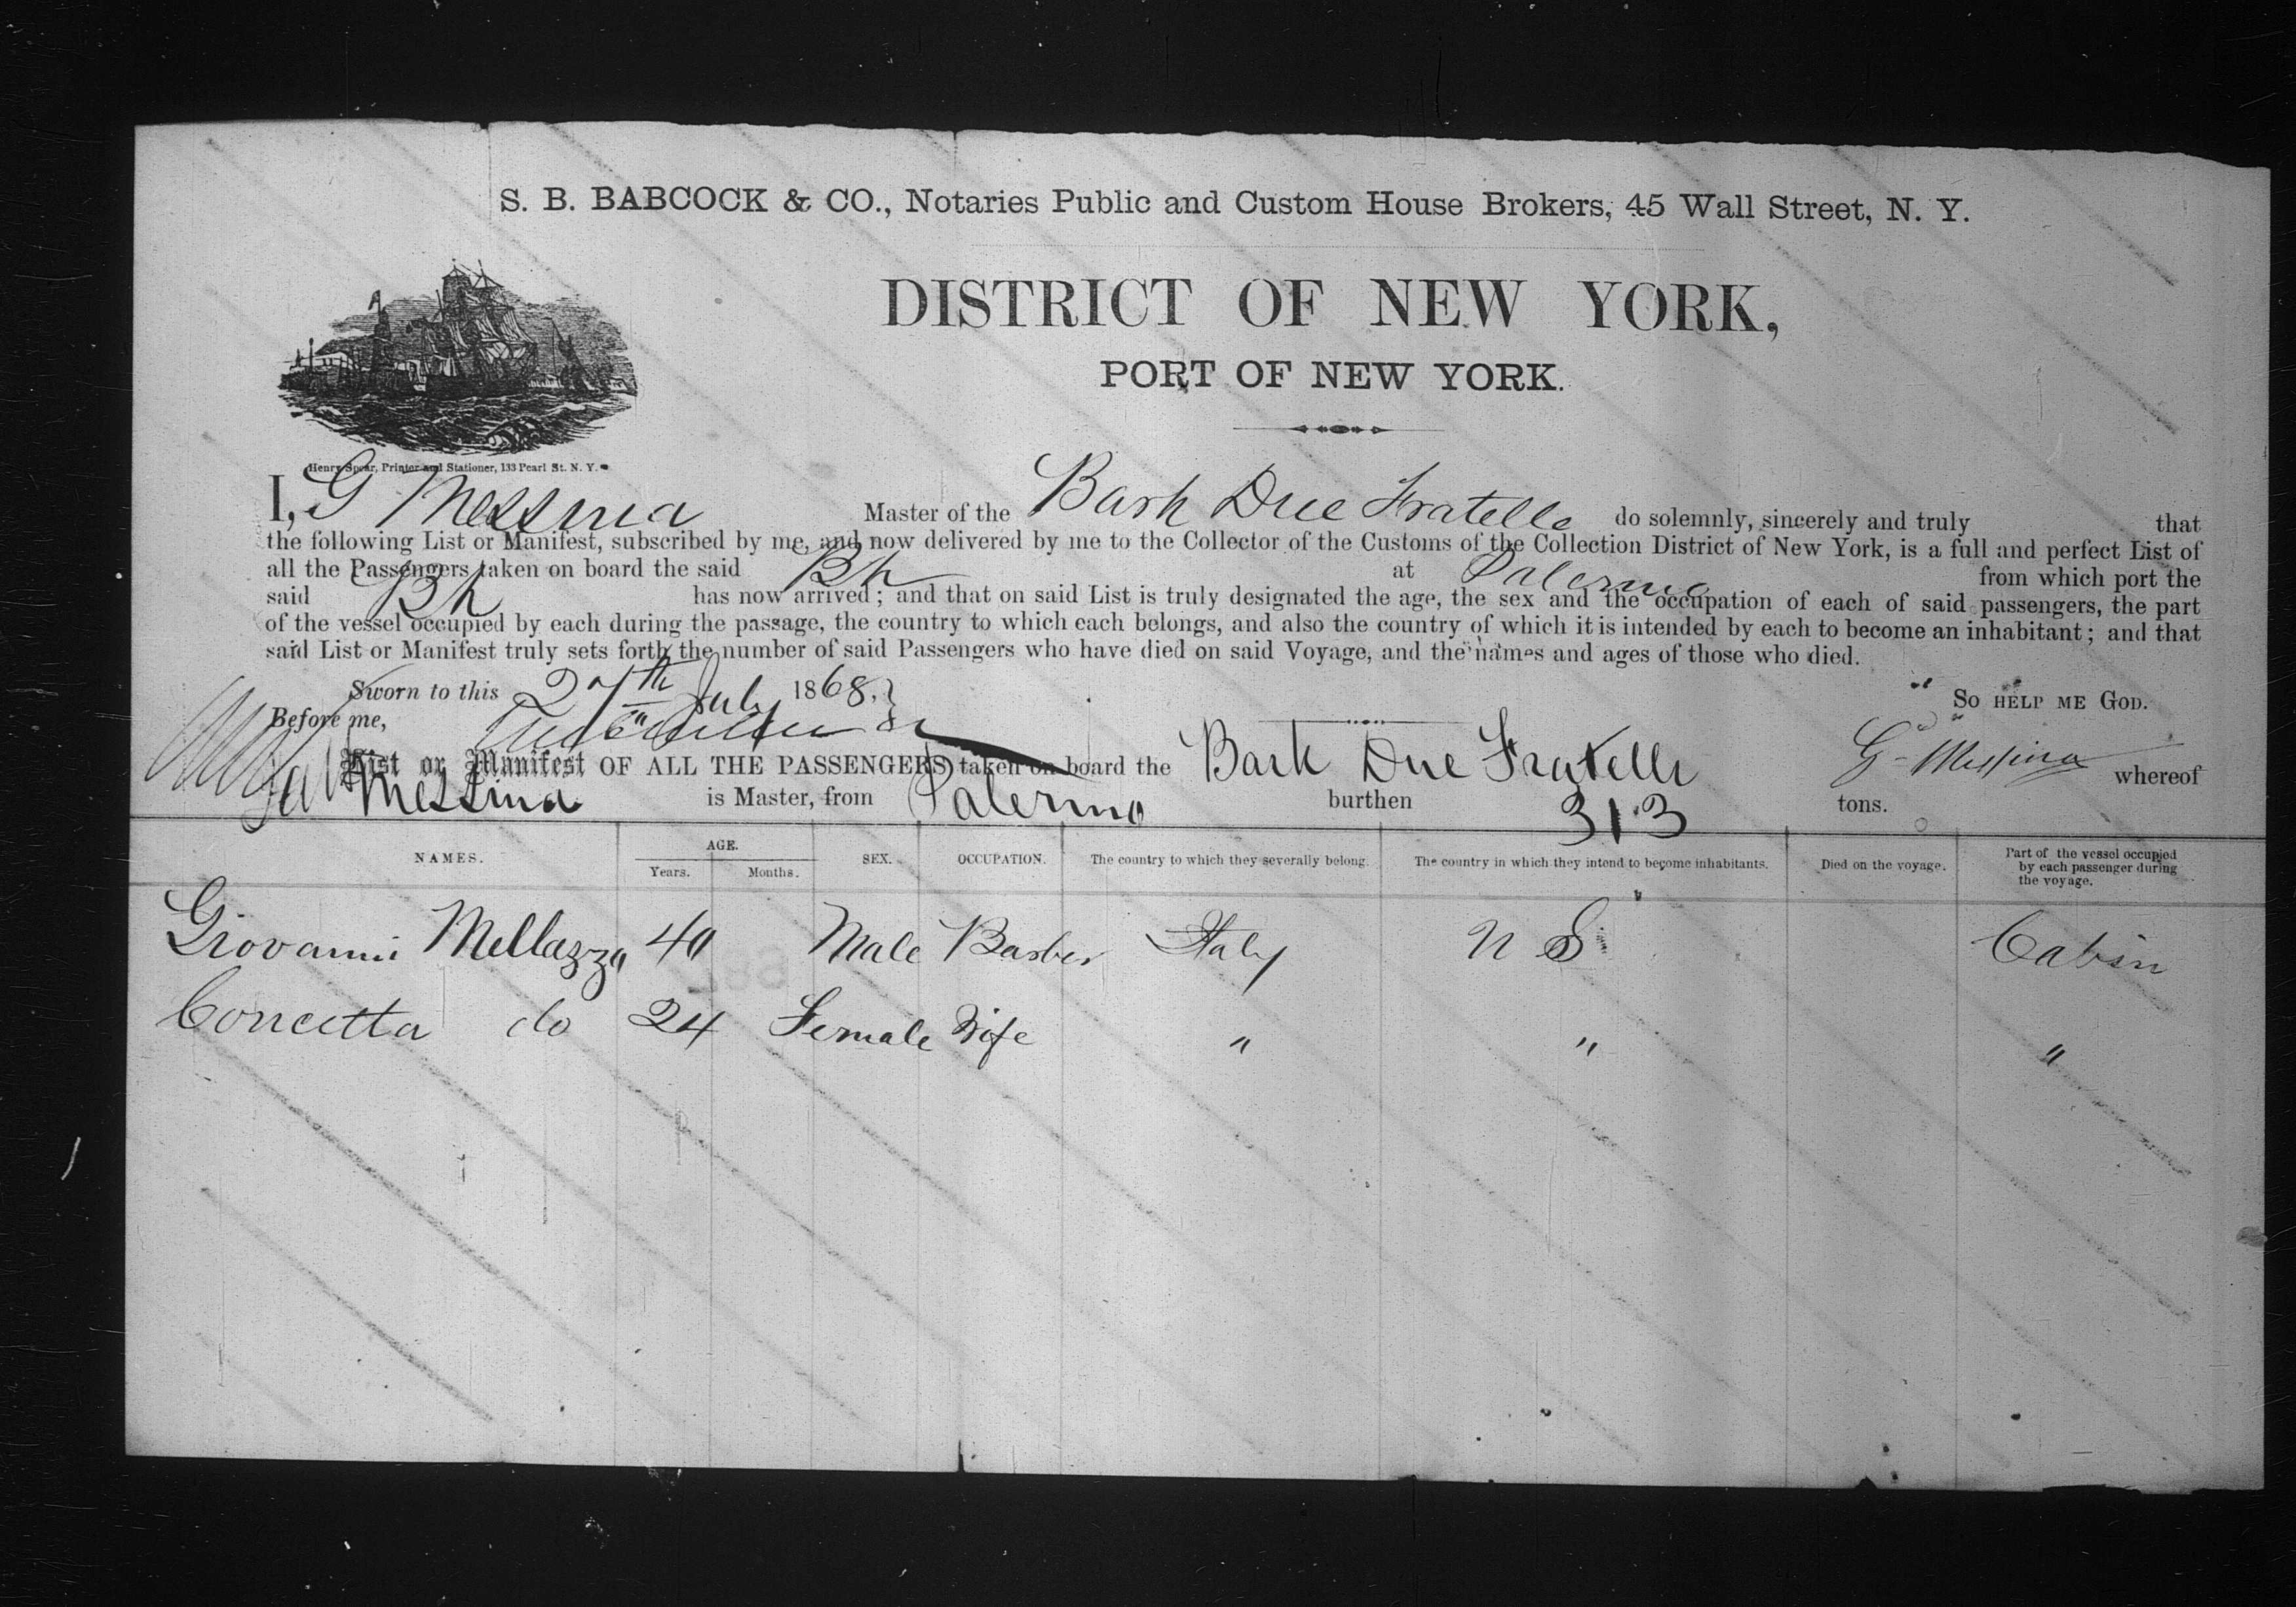 S. B. BABCOCK & CO., Notaries Public and Custom House Brokers, 45 Wall Street, N. Y.
DISTRICT OF NEW YORK,
PORT OF NEW YORK.
Henry Spear, Printer and Stationer, 133 Pearl St. N. Y.
I, G Messina Master of the Bark Due Fratelle do solemnly, sincerely and truly that
the following List or Manifest, subscribed by me, and now delivered by me to the Collector of the Customs of the Collection District of New York, is a full and perfect List of
all the Passengers taken on board the said Bk at Palermo from which port the
said Bk has now arrived; and that on said List is truly designated the age, the sex and the occupation of each of said passengers, the part
of the vessel occupied by each during the passage, the country to which each belongs, and also the country of which it is intended by each to become an inhabitant; and that
said List or Manifest truly sets forth the number of said Passengers who have died on said Voyage, and the names and ages of those who died.
Sworn to this 27th July 1868. So help me God.
Before me,
G Messina
List or Manifest OF ALL THE PASSENGERS taken on board the Bark Due Fratelli whereof
Messina is Master, from Palermo burthen 313 tons.
NAMES. AGE. Years. Months. SEX. OCCUPATION. The country to which they severally belong. The country in which they intend to become inhabitants. Died on the voyage. Part of the vessel occupied by each passenger during the voyage.
Giovanni Mellazzo 40 Male Barber Italy U S Cabin
Concetta do 24 Female Wife " " "